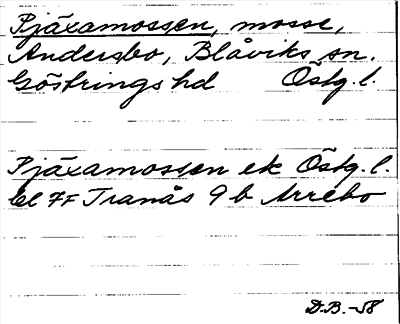 Pjäxamossen, mosse,
Andersbo, Blåviks sn.
Göstrings hd Östg. l.
Pjäxamossen ek Östg. l.
bl 7F Tranås 9 b Arrebo
D.B. -58